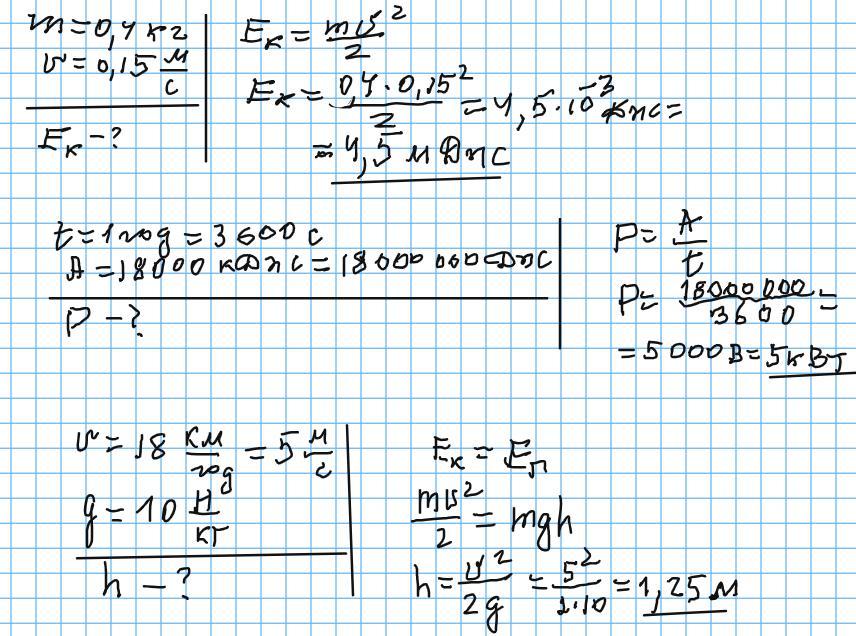 m = 0,4 кг
v = 0,15 м/с
Eк - ?
Eк = mv²/2
Eк = 0,4 · 0,15²/2 = 4,5 · 10⁻³ Дж =
= 4,5 мДж
t = 1 год = 3600 с
A = 18000 кДж = 18000000 Дж
P - ?
P = A/t
P = 18000000/3600 =
= 5000 В = 5 кВт
v = 18 км/год = 5 м/с
g = 10 Н/кг
h - ?
Eк = Eп
mv²/2 = mgh
h = v²/2g = 5²/2·10 = 1,25 м